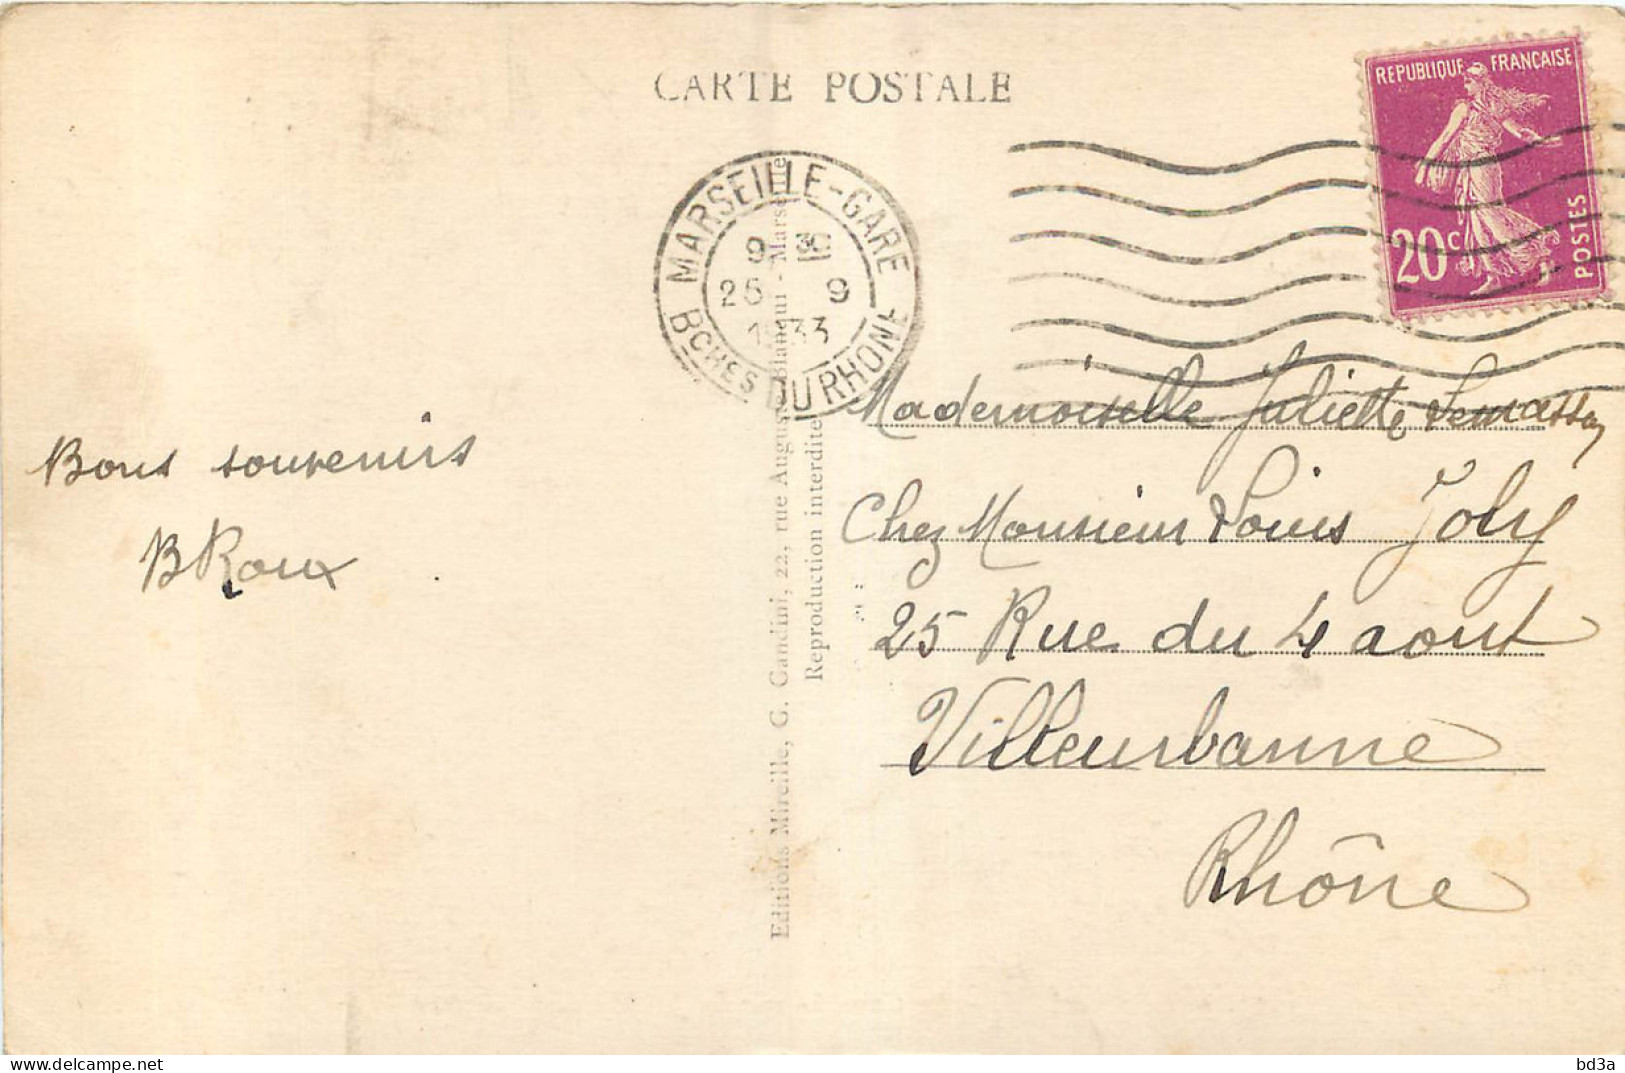 CARTE POSTALE
REPUBLIQUE FRANCAISE
20c
POSTES
MARSEILLE-GARE
9 30
25 9
1933
BCHES DU RHONE
Bons souvenirs
BRoux
Editions Mireille, G. Gandini, 22, rue Auguste Blanqui - Marseille
Reproduction interdite
Mademoiselle Juliette
Chez Monsieur Louis Joly
25 Rue du 4 aout
Villeurbanne
Rhône
bd3a